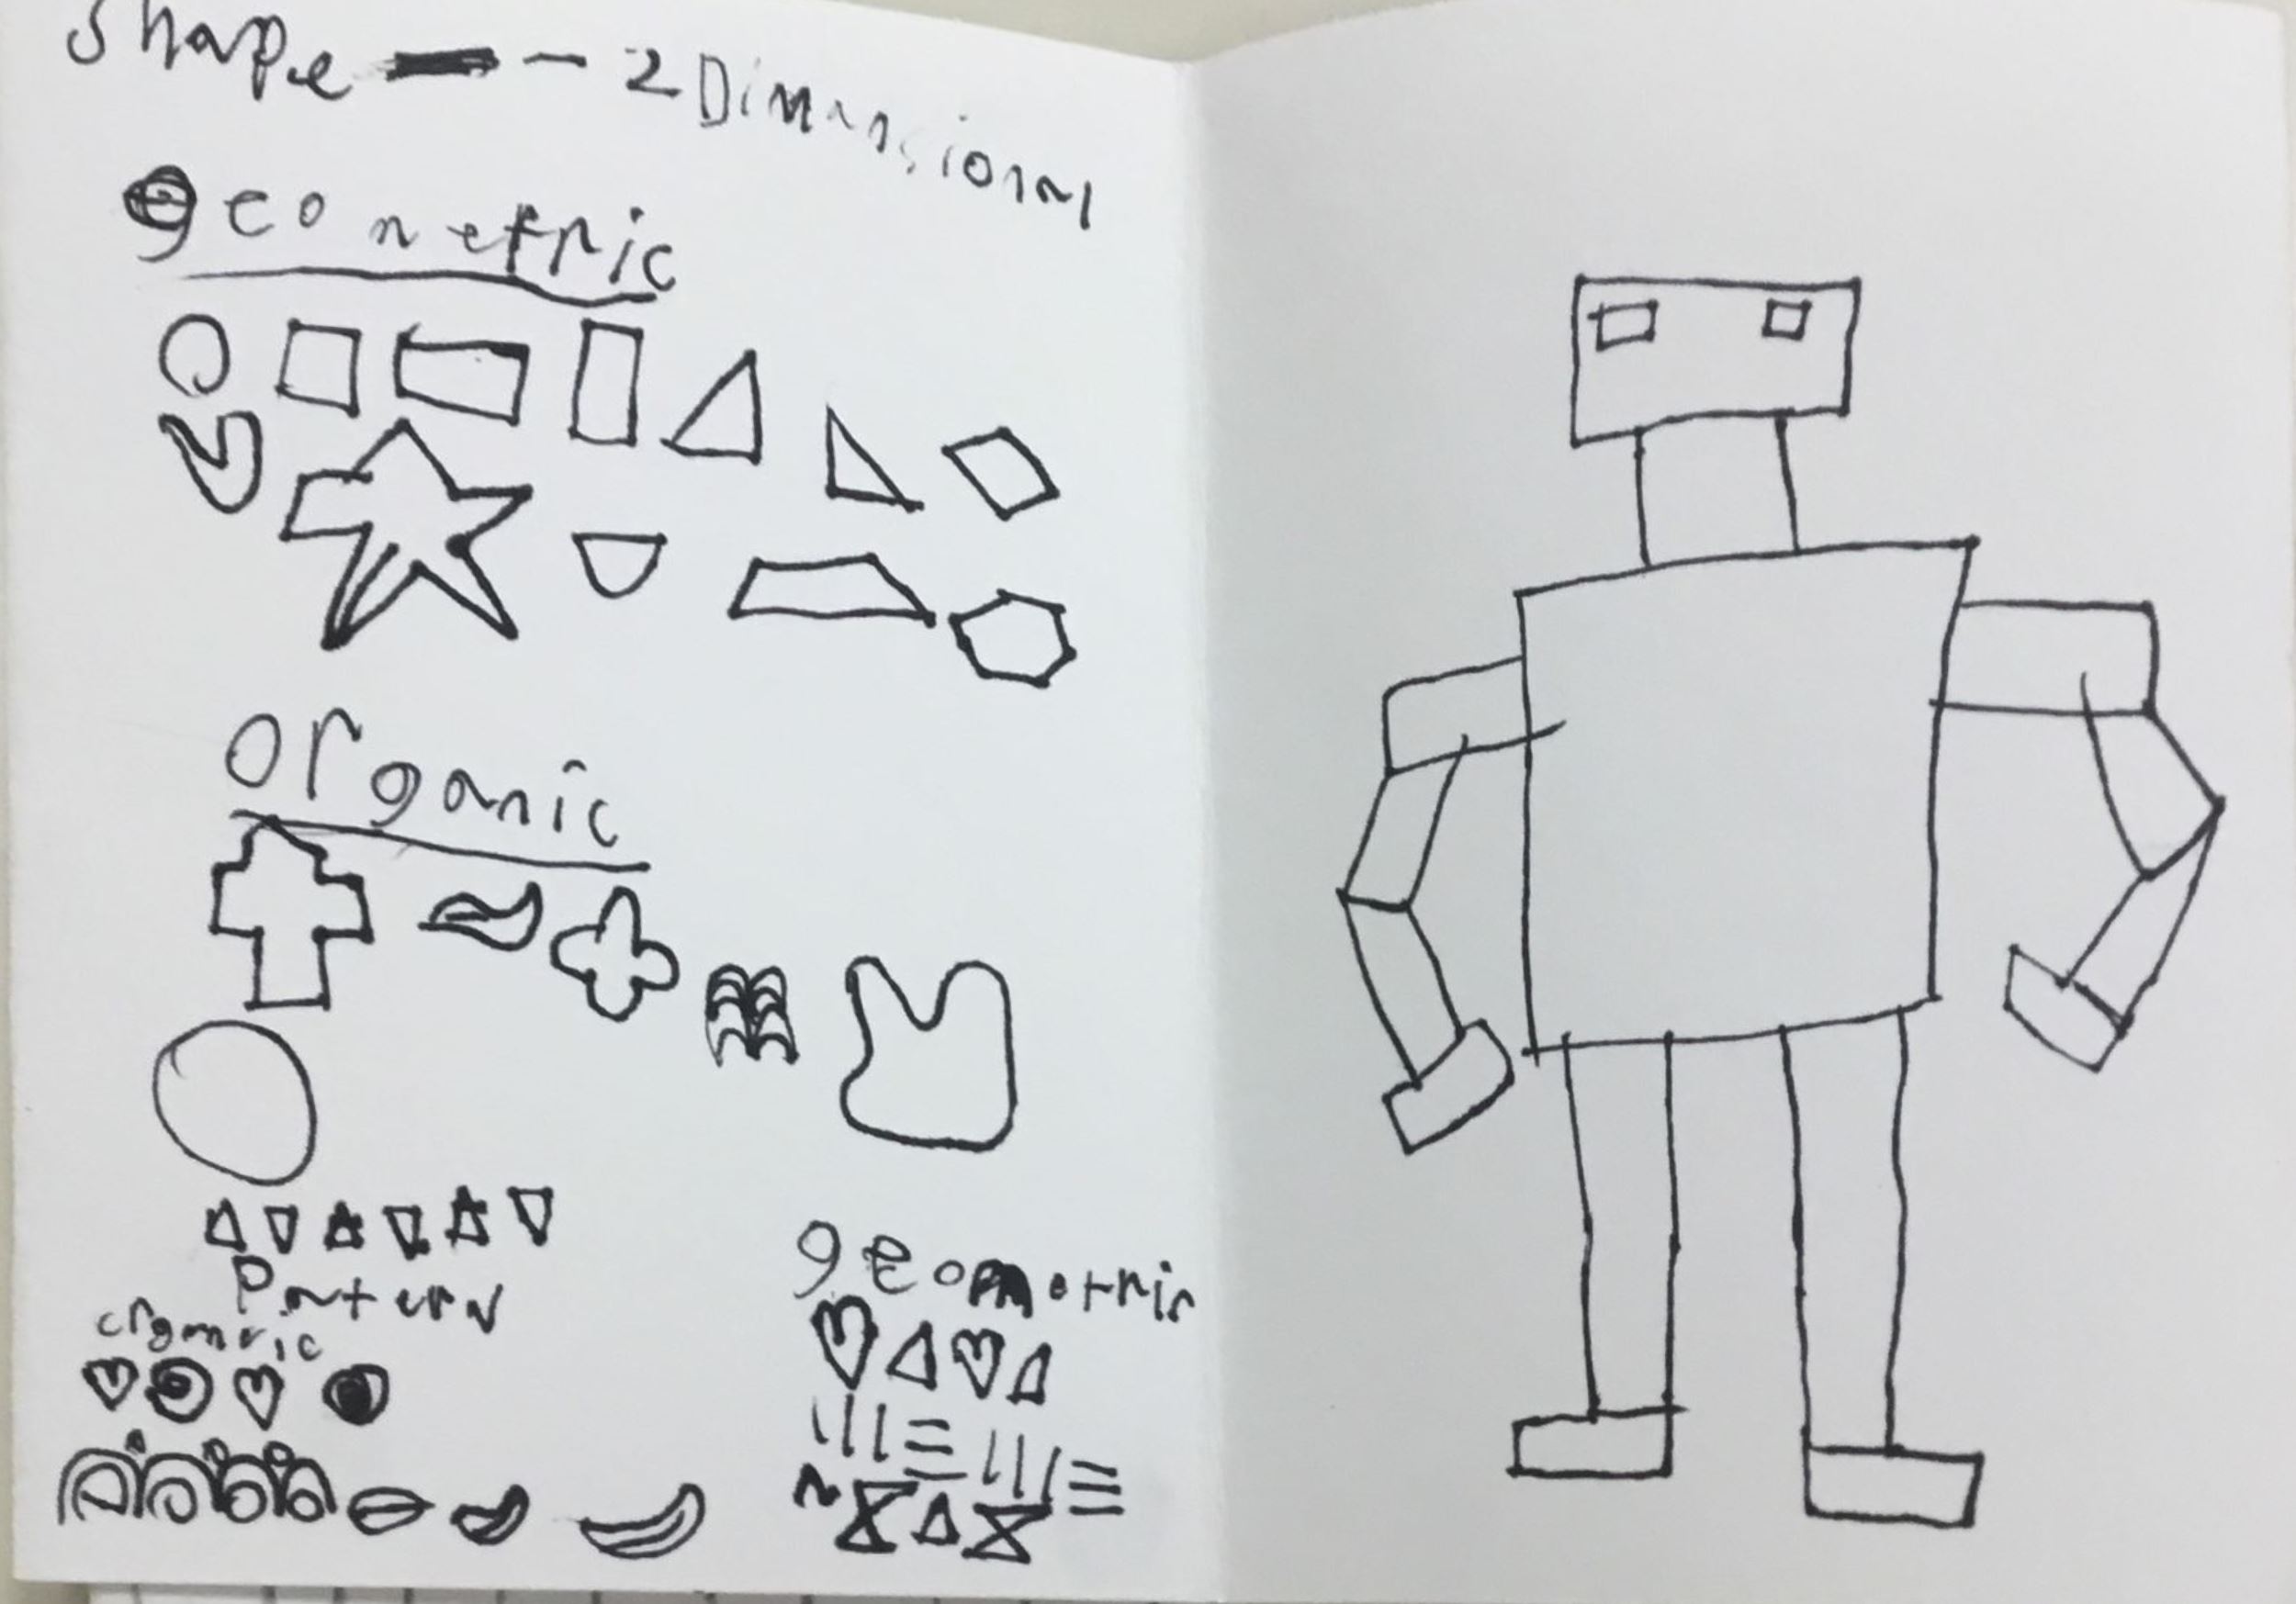 Shape - 2 Dimansional
geonetric
organic
Pattern
organic
geometric